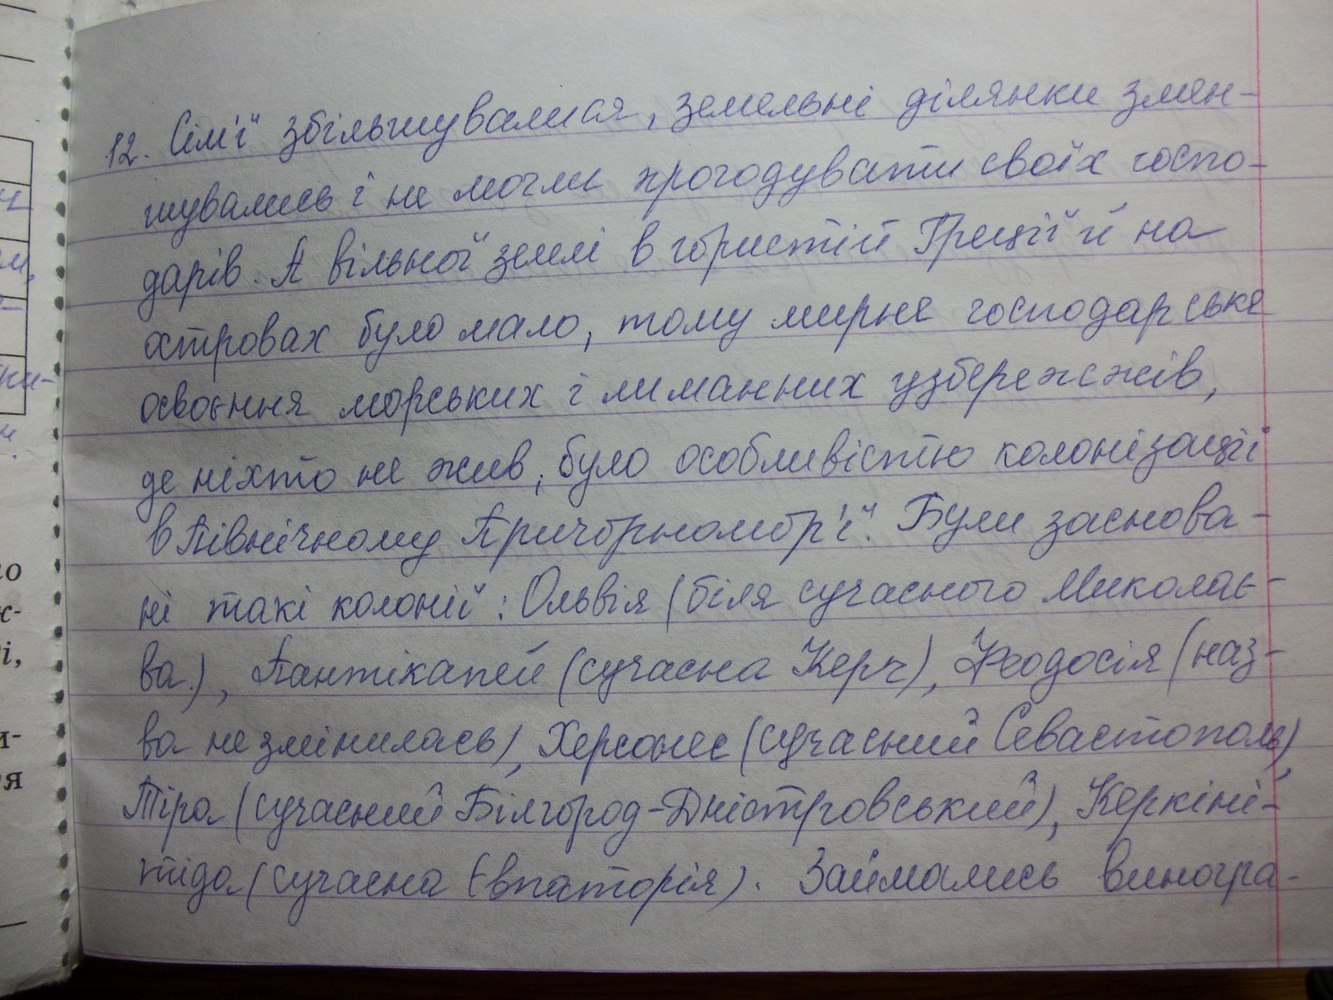 12. Сім'ї збільшувалися, земельні ділянки змен-
шувались і не могли прогодувати своїх госпо-
дарів. А вільної землі в гористій Греції й на
островах було мало, тому мирне господарське
освоєння морських і лиманних узбережжів,
де ніхто не жив, було особливістю колонізації
в Північному Причорномор'ї. Були заснова-
ні такі колонії: Ольвія (біля сучасного Миколає-
ва.), Пантікапей (сучасна Керч), Феодосія (наз-
ва не змінилась), Херсонес (сучасний Севастополь),
Тіра (сучасний Білгород-Дністровський), Керкіні-
тіда (сучасна Євпаторія). Займались виногра-